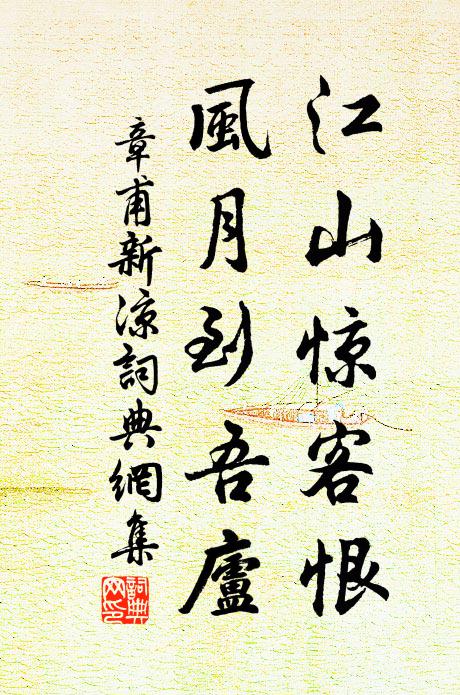 江山惊客恨
風月到吾廬
章甫新涼詞典網集
詞典